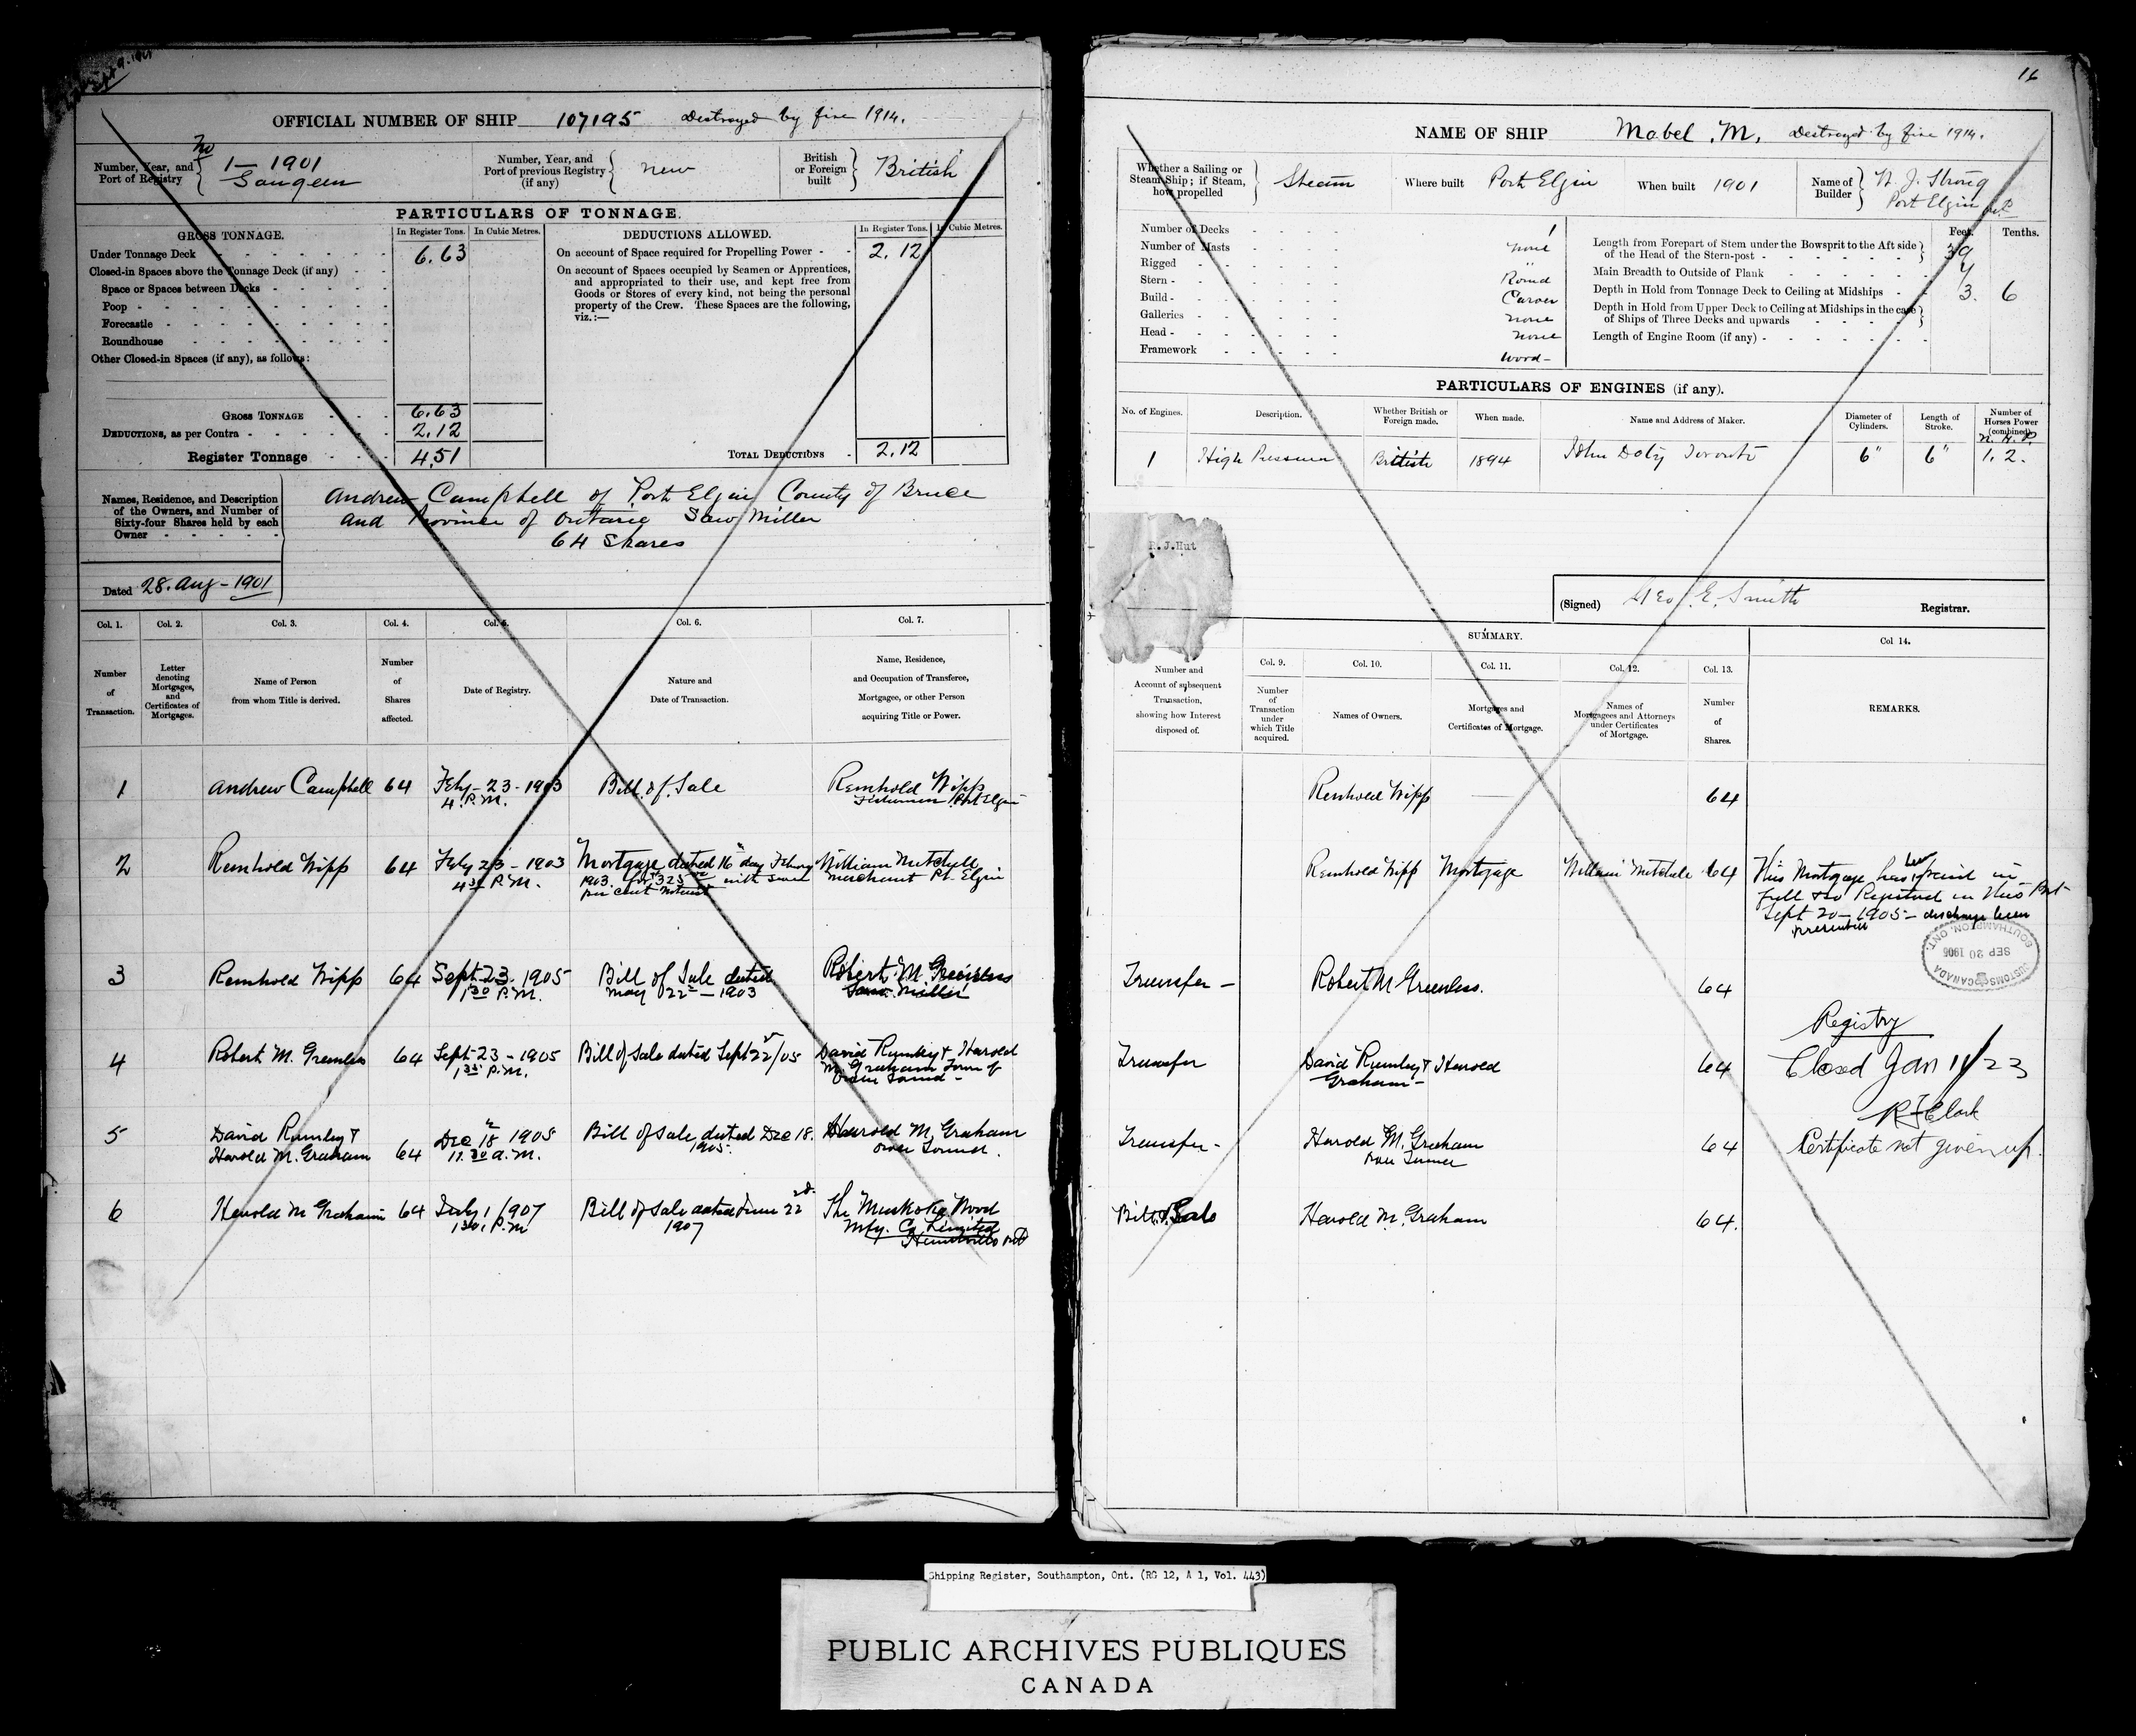 OFFICIAL NUMBER OF SHIP 107195 Destroyed by fire 1914.
Number, Year, and Port of Registry { No 1 — 1901 Saugeen
Number, Year, and Port of previous Registry (if any) { new
British or Foreign built } British
PARTICULARS OF TONNAGE.
GROSS TONNAGE. In Register Tons. In Cubic Metres.
Under Tonnage Deck 6.63
Closed-in Spaces above the Tonnage Deck (if any)
Space or Spaces between Decks
Poop
Forecastle
Roundhouse
Other Closed-in Spaces (if any), as follows:
GROSS TONNAGE 6.63
DEDUCTIONS, as per Contra 2.12
Register Tonnage 4.51
DEDUCTIONS ALLOWED. In Register Tons. In Cubic Metres.
On account of Space required for Propelling Power 2.12
On account of Spaces occupied by Seamen or Apprentices,
and appropriated to their use, and kept free from
Goods or Stores of every kind, not being the personal
property of the Crew. These Spaces are the following,
viz.:—
TOTAL DEDUCTIONS 2.12
Names, Residence, and Description
of the Owners, and Number of
Sixty-four Shares held by each
Owner
Andrew Campbell of Port Elgin County of Bruce
and Province of Ontario Saw Miller
64 Shares
Dated 28. Aug - 1901
Col. 1. Col. 2. Col. 3. Col. 4. Col. 5. Col. 6. Col. 7.
Number of Transaction.
Letter denoting Mortgages, and Certificates of Mortgages.
Name of Person from whom Title is derived.
Number of Shares affected.
Date of Registry.
Nature and Date of Transaction.
Name, Residence, and Occupation of Transferee, Mortgagee, or other Person acquiring Title or Power.
1 Andrew Campbell 64 Feby - 23 - 1903 4 P.M. Bill of Sale Reinhold Wipp Fisherman Port Elgin
2 Reinhold Wipp 64 Feby 23 - 1903 4 30 P.M. Mortgage dated 16 day Febury 1903. for 325 with seven per cent interest William Mitchell merchant Pt. Elgin
3 Reinhold Wipp 64 Sept. 23. 1905 1 30 P.M. Bill of Sale dated May 22 — 1903 Robert M. Greenless Saw Miller
4 Robert M. Greenless 64 Sept 23 - 1905 P.M. Bill of Sale dated Sept 22/05 David Rumley & Harold M. Graham Town of Owen Sound -
5 David Rumley & Harold M. Graham 64 Dec 18 1905 11.30 a.m. Bill of Sale dated Dec 18. 1905. Harold M. Graham Owen Sound.
6 Harold M Graham 64 July 1 1907 1 30 P.M Bill of Sale dated June 22 nd 1907 The Muskoka Wood Mfg. Co Limited Huntsville Ont
16
NAME OF SHIP Mabel .M. Destroyed by fire 1914.
Whether a Sailing or Steam Ship; if Steam, how propelled } Steam
Where built Port Elgin
When built 1901
Name of Builder } Strong Port Elgin Ont
Number of Decks 1
Number of Masts none
Rigged "
Stern Round
Build Carver
Galleries none
Head none
Framework wood -
Feet. Tenths.
Length from Forepart of Stem under the Bowsprit to the Aft side of the Head of the Stern-post 39
Main Breadth to Outside of Plank
Depth in Hold from Tonnage Deck to Ceiling at Midships 3. 6
Depth in Hold from Upper Deck to Ceiling at Midships in the case of Ships of Three Decks and upwards
Length of Engine Room (if any)
PARTICULARS OF ENGINES (if any).
No. of Engines. Description. Whether British or Foreign made. When made. Name and Address of Maker. Diameter of Cylinders. Length of Stroke. Number of Horses Power (combined).
N. H. P.
1 High Pressure British 1894 John Doty Toronto 6" 6" 1.2.
R.J.Hut
(Signed) Geo. E. Smith Registrar.
SUMMARY.
Number and Account of subsequent Transaction, showing how Interest disposed of.
Col. 9. Number of Transaction under which Title acquired.
Col. 10. Names of Owners.
Col. 11. Mortgages and Certificates of Mortgage.
Col. 12. Names of Mortgagees and Attorneys under Certificates of Mortgage.
Col. 13. Number of Shares.
Col 14. REMARKS.
Reinhold Wipp — 64
Reinhold Wipp Mortgage William Mitchell 64 This Mortgage has been paid in
full & so Registered in this Port
Sept 20 - 1905 - discharge been
presented
CUSTOMS CANADA SEP 20 1905 SOUTHAMPTON, ONT.
Transfer - Robert M Greenless. 64
Registry
Transfer David Rumley & Harold Graham - 64 Closed Jan 11/23
R J Clark
Transfer - Harold M. Graham Owen Sound 64 Certificate not given up.
Bill of Sale Harold M. Graham 64.
Shipping Register, Southampton, Ont. (RG 12, A 1, Vol. 443)
PUBLIC ARCHIVES PUBLIQUES
CANADA